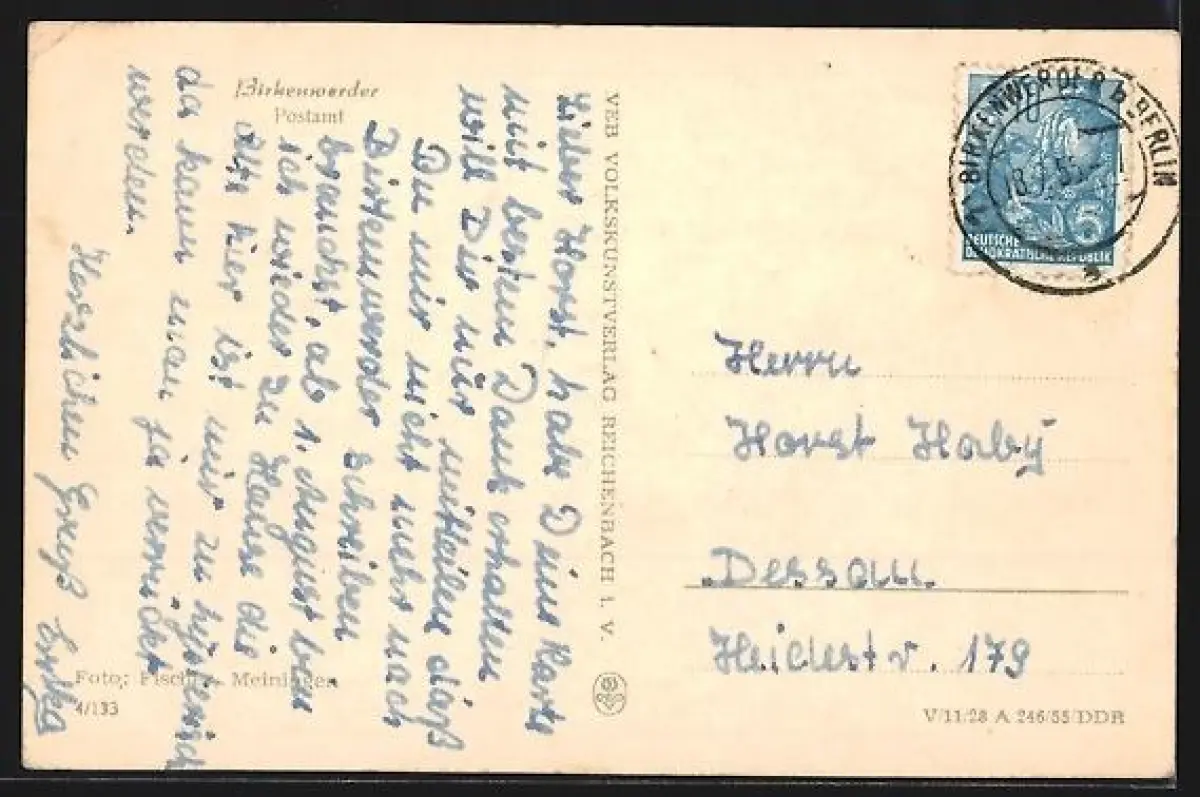 Birkenwerder
Postamt
Lieber Horst, habe Deine Karte
mit besten Dank erhalten
will Dir nur mitteilen daß
Du mir nicht mehr nach
Birkenwerder schreiben
brauchst, ab 1. August bin
ich wieder zu Hause die
Alte hier ist mir zu hysterisch
da kann man ja verrückt
werden.
Herzlichen Gruß Erika
Foto: Fischer, Meiningen
4/133
VEB VOLKSKUNSTVERLAG REICHENBACH I. V.
BIRKENWERDER b. BERLIN
5
DEUTSCHE
DEMOKRATISCHE REPUBLIK
Herrn
Horst Haby
Dessau
Heidestr. 179
V/11/28 A 246/55/DDR